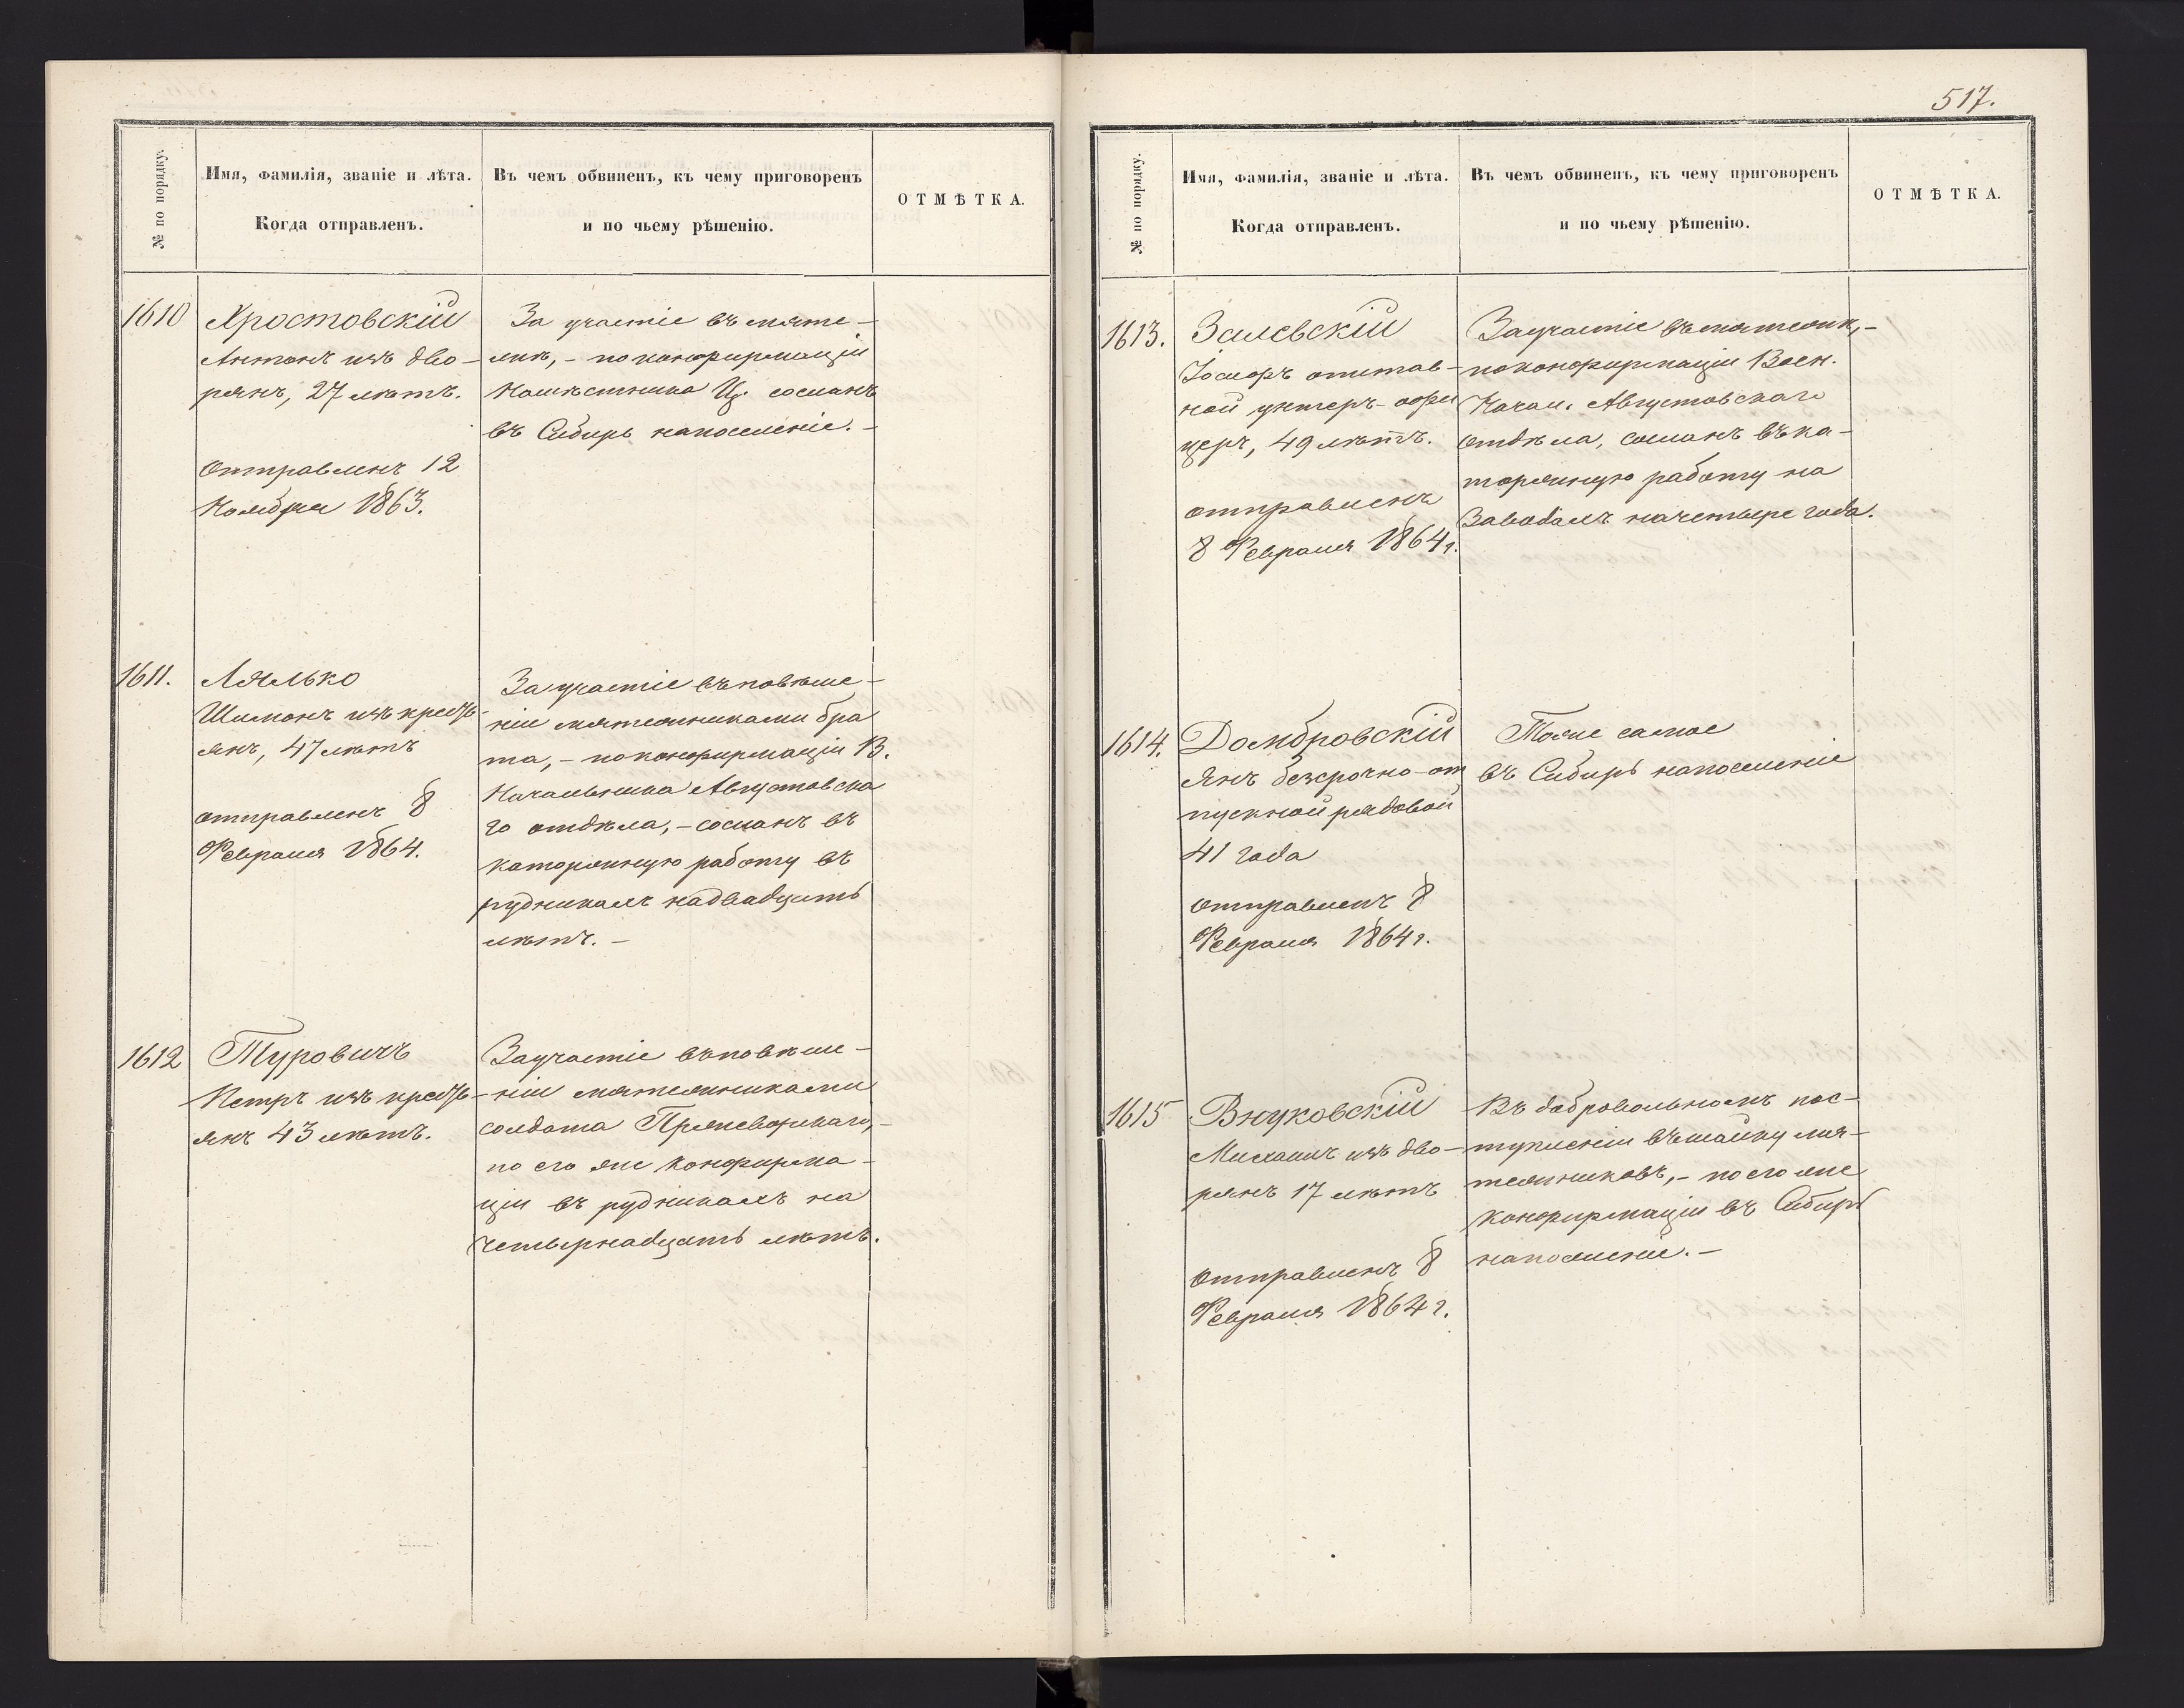 № по порядку.
Имя, фамилія, званіе и лѣта.
Когда отправленъ.
Въ чемъ обвиненъ, къ чему приговоренъ
и по чьему рѣшенію.
ОТМѢТКА.
1610
Хростовскій
Антонъ изъ дво-
рянъ, 27 лѣтъ.
Отправленъ 12
Ноября 1863.
За участіе въ мяте-
жѣ, - по конфирмаціи
Намѣстника Ц. сосланъ
въ Сибирь на поселеніе. -
1611.
Лялько
Шимонъ изъ кресть-
янъ, 47 лѣтъ
отправленъ 8
Февраля 1864.
За участіе въ повѣше-
ніи мятежниками бра
та, - по конфирмаціи В.
Начальника Августовска
го отдѣла, - сосланъ въ
каторжную работу въ
рудникахъ на двадцать
лѣтъ. -
1612
Туровичъ
Петръ изъ кресть-
янъ 43 лѣтъ.
За участіе въ повѣше-
ніи мятежниками
солдата
по его же конфирма-
ціи въ рудникахъ на
четырнадцать лѣтъ.
517.
№ по порядку.
Имя, фамилія, званіе и лѣта.
Когда отправленъ.
Въ чемъ обвиненъ, къ чему приговоренъ
и по чьему рѣшенію.
ОТМѢТКА.
1613.
Залевскій
Іосифъ отстав-
ной унтеръ-офи
церъ, 49 лѣтъ.
отправленъ
8 Февраля 1864 г.
За участіе въ мятежѣ, -
по конфирмаціи Воен.
Начал. Августовскаго
отдѣла, сосланъ въ ка-
торжную работу на
Заводахъ на четыре года.
1614.
Домбровскій
Янъ безсрочно-от
пускной рядовой
41 года
отправленъ 8
Февраля 1864 г.
Тоже самое
въ Сибирь на поселеніе
1615
Внуковскій
Михаилъ изъ дво-
рянъ 17 лѣтъ
Отправленъ 8
Февраля 1864 г.
Въ добровольномъ пос-
тупленіи въ шайку мя-
тежниковъ, - по его же
конфирмаціи въ Сибирь
на поселеніе. -